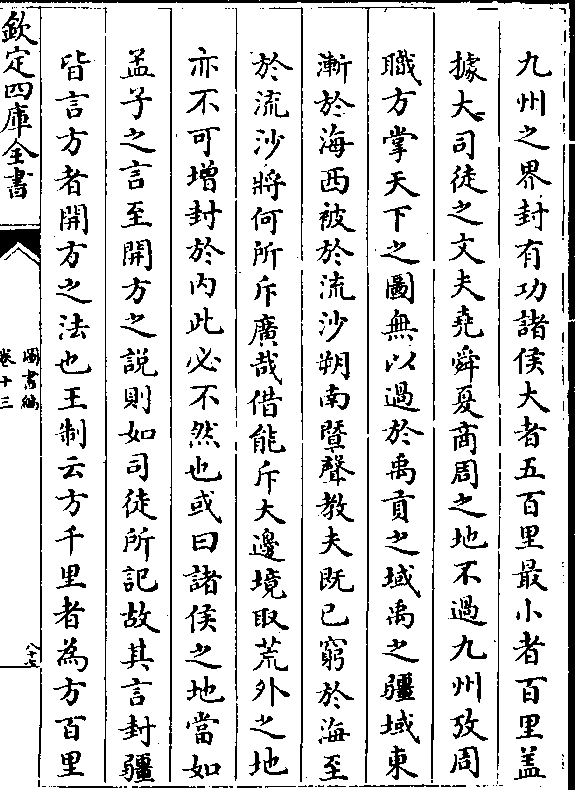 九州之界封有功諸侯大者五百里最小者百里盖
據大司徒之文夫堯舜夏商周之地不過九州攷周
職方掌天下之圖無以過於禹貢之域禹之疆域東
漸於海西被於流沙朔南暨聲教夫既已窮於海至
於流沙將何所斥廣哉借能斥大邊境取荒外之地
亦不可增封於内此必不然也或曰諸侯之地當如
孟子之言至開方之説則如司徒所記故其言封疆
皆言方者開方之法也王制云方千里者為方百里
欽定四庫全書
圖書編
卷十三